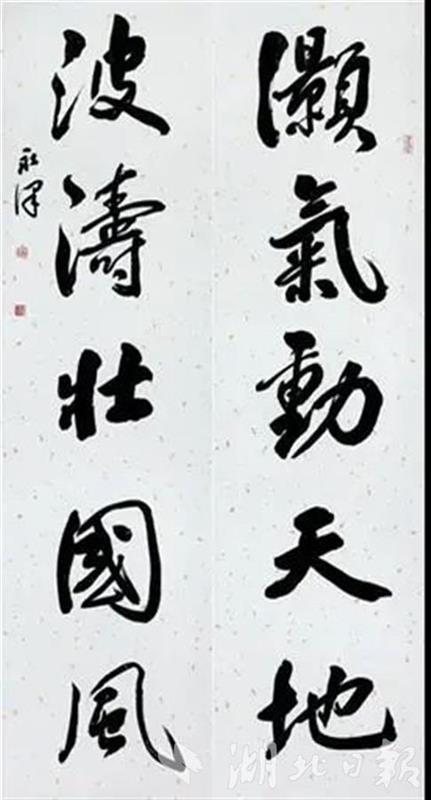 灝氣動天地
波濤壯國風
永澤
湖北日報